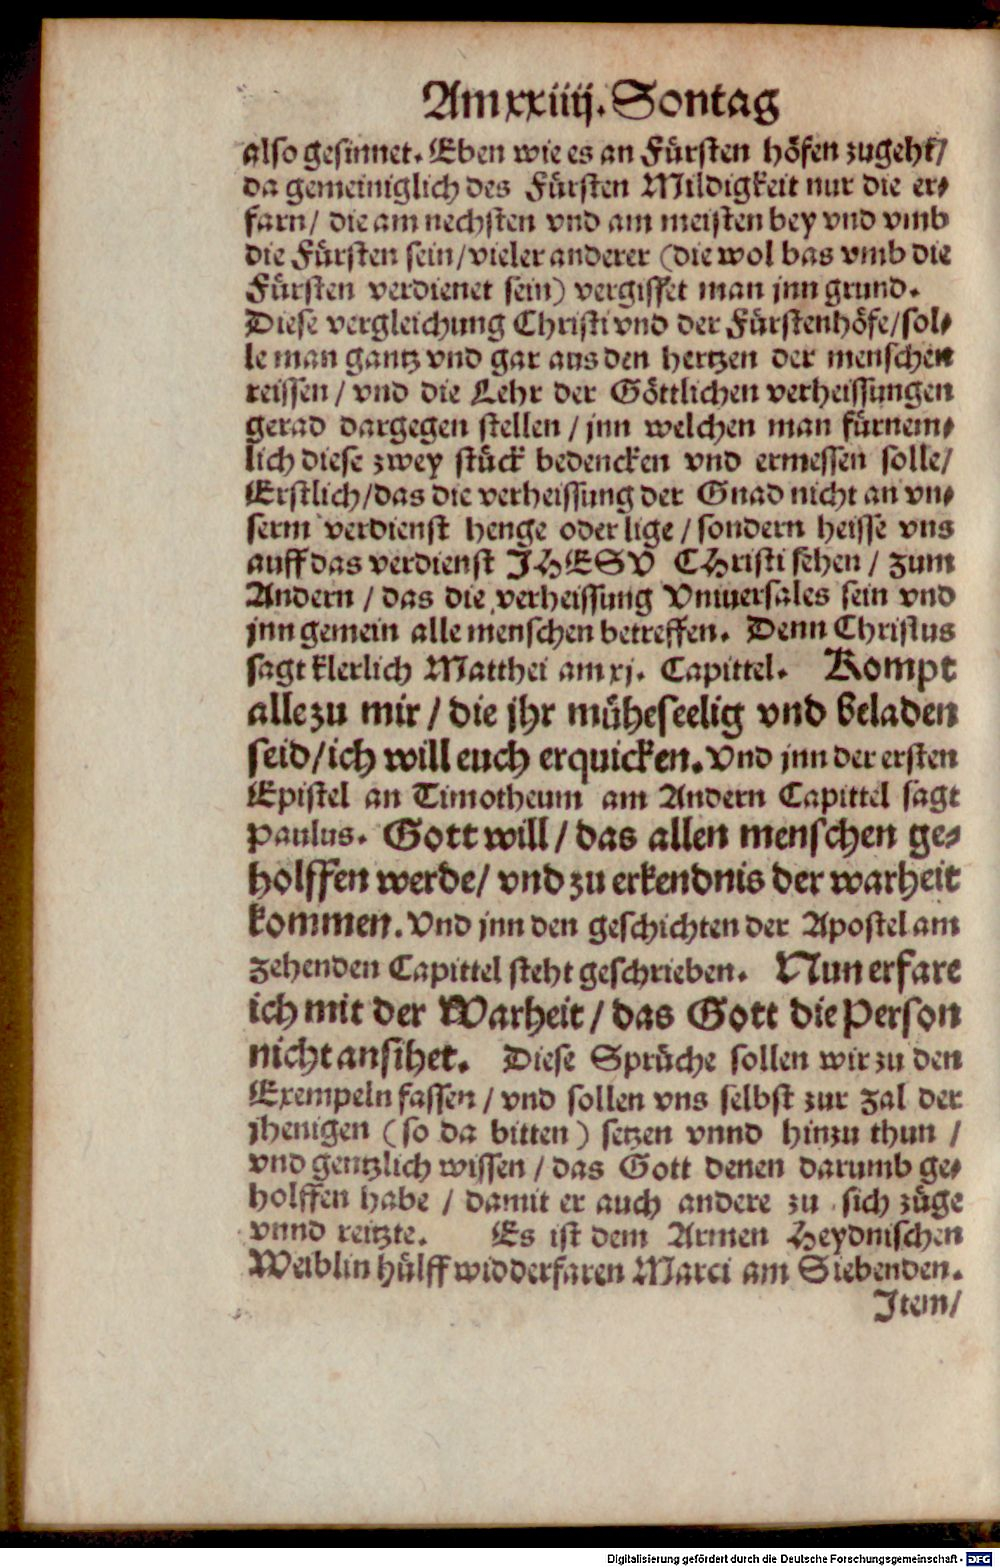 Am xxiiij. Sontag
also gesinnet. Eben wie es an Fürsten höfen zugeht/
da gemeiniglich des Fürsten Mildigkeit nur die er-
farn/ die am nechsten vnd am meisten bey vnd vmb
die Fürsten sein/ vieler anderer (die wol bas vmb die
Fürsten verdienet sein) vergisset man jnn grund.
Diese vergleichung Christi vnd der Fürstenhöfe/ sol-
le man gantz vnd gar aus den hertzen der menschen
reissen / vnd die Lehr der Göttlichen verheissungen
gerad dargegen stellen / jnn welchen man fürnem-
lich diese zwey stück bedencken vnd ermessen solle/
Erstlich/ das die verheissung der Gnad nicht an vn-
serm verdienst henge oder lige / sondern heisse vns
auff das verdienst JHESV CHristi sehen / zum
Andern / das die verheissung Vniuersales sein vnd
jnn gemein alle menschen betreffen. Denn Christus
sagt klerlich Matthei am xj. Capittel. Kompt
alle zu mir / die jhr müheseelig vnd beladen
seid/ ich will euch erquicken. Vnd jnn der ersten
Epistel an Timotheum am Andern Capittel sagt
Paulus. Gott will / das allen menschen ge-
holffen werde/ vnd zu erkendnis der warheit
kommen. Vnd jnn den geschichten der Apostel am
zehenden Capittel steht geschrieben. Nun erfare
ich mit der Warheit / das Gott die Person
nicht ansihet. Diese Sprüche sollen wir zu den
Exempeln fassen / vnd sollen vns selbst zur zal der
jhenigen (so da bitten) setzen vnnd hinzu thun /
vnd gentzlich wissen / das Gott denen darumb ge-
holffen habe / damit er auch andere zu sich züge
vnnd reitzte. Es ist dem Armen Heydnischen
Weiblin hülff widderfaren Marci am Siebenden.
Item/
Digitalisierung gefördert durch die Deutsche Forschungsgemeinschaft - DFG